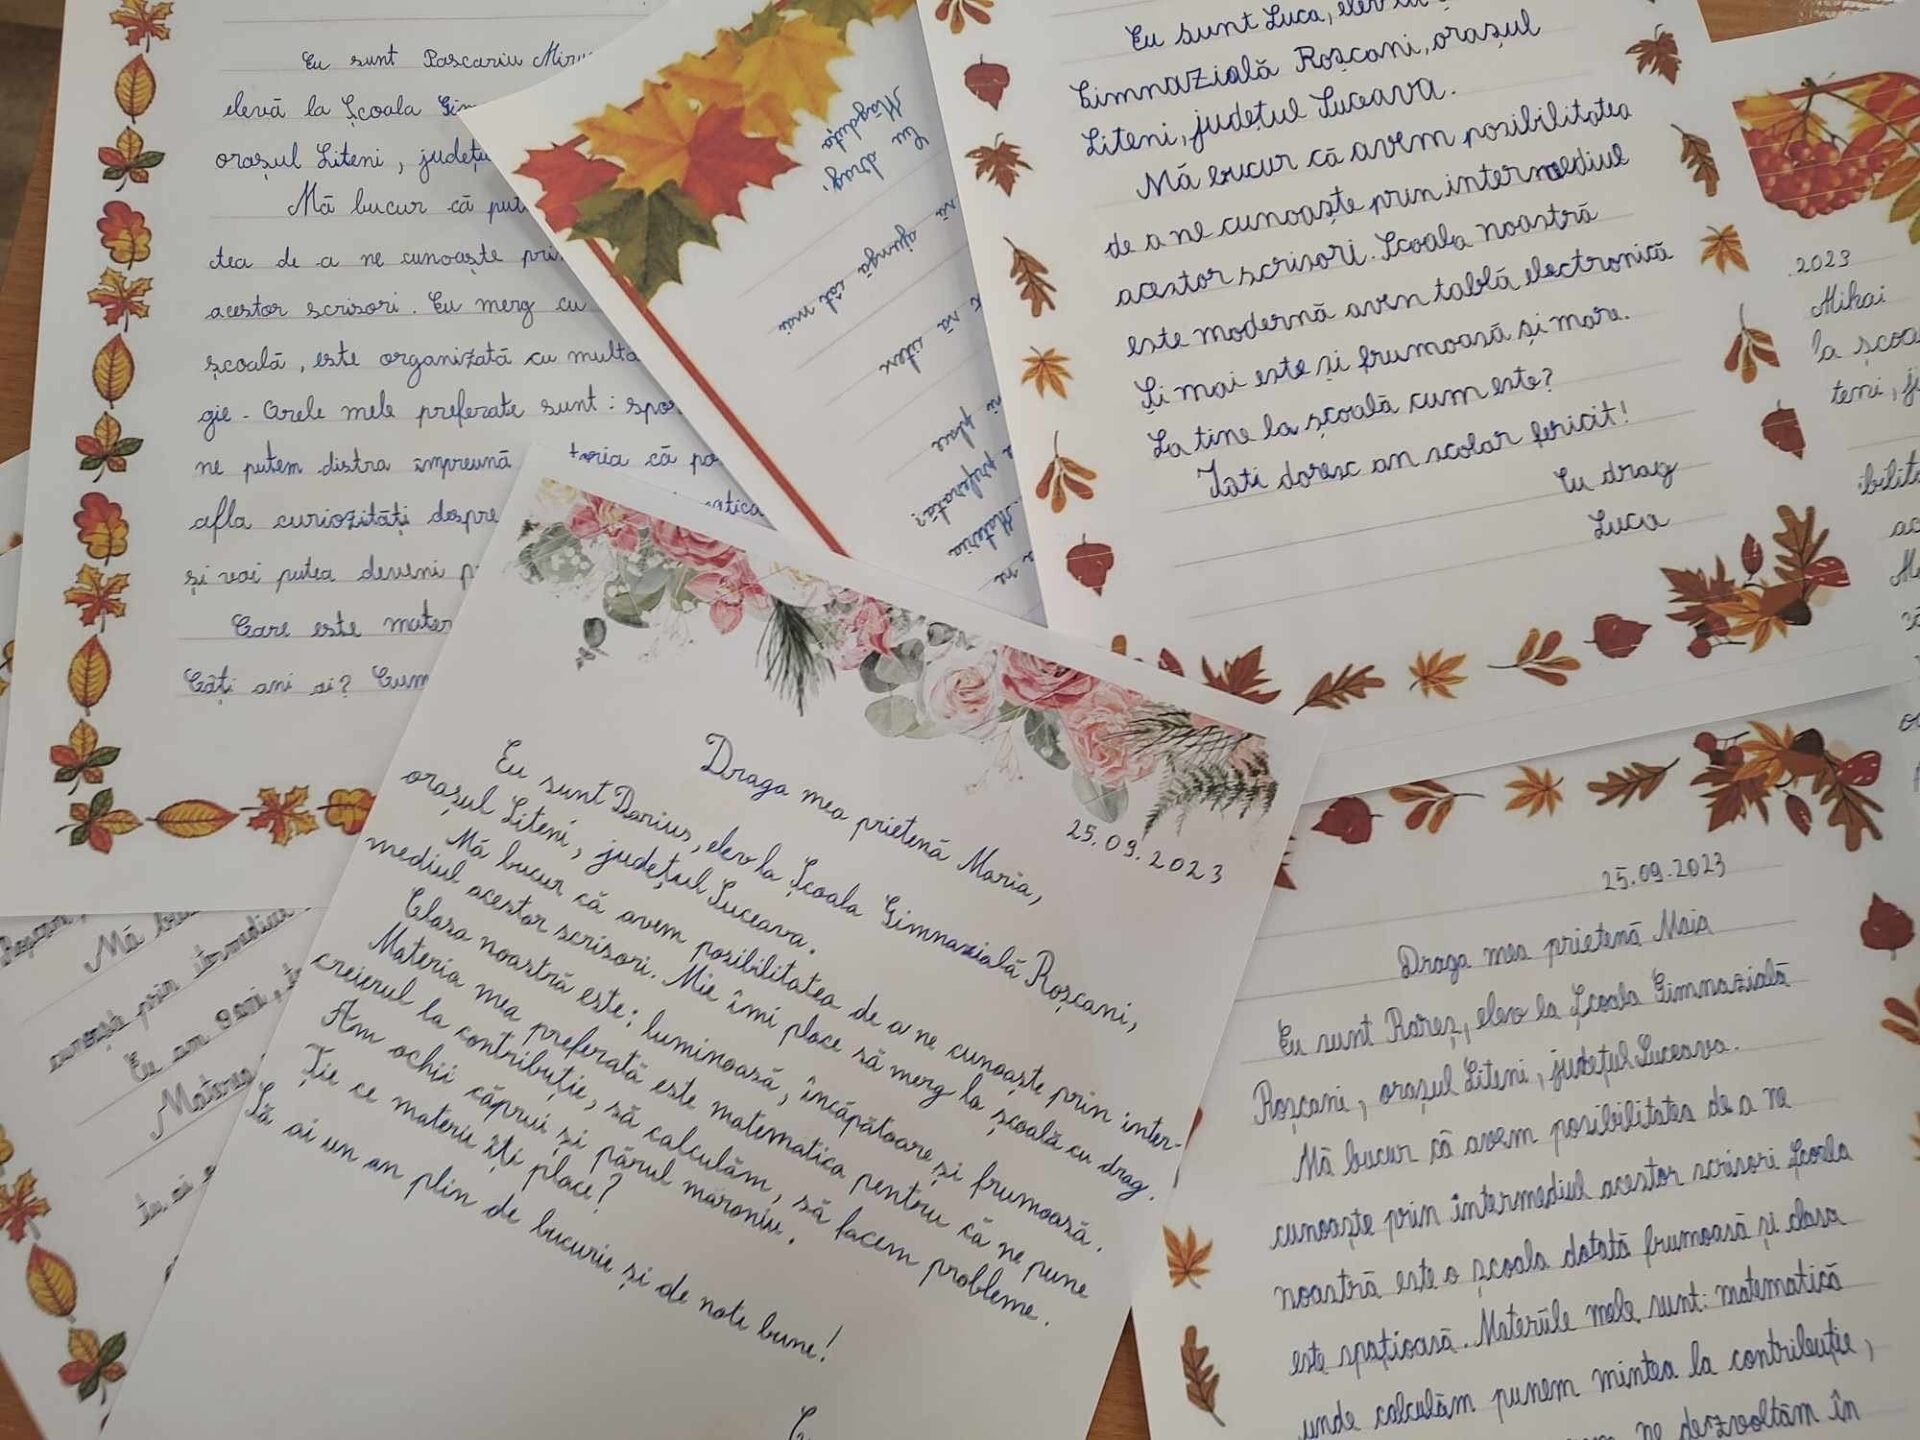 Eu sunt Pascariu
elevă la Școala
orașul Liteni, județu
Mă bucur că
tea de a ne cunoaște
acestor scrisori. Eu merg cu
școală, este organizată cu multă
gie. Orele mele preferate sunt:
ne putem distra împreună
afla curiozități despre
și vei putea deveni
Care este
Câți ani ai? Cum
toria că
Cu drag,
Măgduța
să ajungă cât mai
place
preferată?
Materia
Eu sunt Luca, elev
Gimnazială Roșcani, orașul
Liteni, județul Suceava.
Mă bucur că avem posibilitatea
de a ne cunoaște prin intermediul
acestor scrisori. Școala noastră
este modernă aven tablă electronică
Și mai este și frumoasă și mare.
La tine la școală cum este?
Îați doresc an scolar fericit!
Cu drag
Luca
2023
Mihai
la școa
teni, j
25.09.2023
Draga mea prietenă Maria,
Eu sunt Darius, elev la Școala Gimnazială Roșcani,
orașul Liteni, județul Suceava.
Mă bucur că avem posibilitatea de a ne cunoaște prin inter-
mediul acestor scrisori. Mie îmi place să merg la școală cu drag.
Clasa noastră este: luminoasă, încăpătoare și frumoasă.
Materia mea preferată este matematica pentru că ne pune
creierul la contribuție, să calculăm, să facem probleme.
Am ochii căprui și părul maroniu.
Ție ce materii îți place?
Să ai un an plin de bucurii și de note bune!
25.09.2023
Draga mea prietenă Maia
Eu sunt Rareș, elev la Școala Gimnazială
Roșcani, orașul Liteni, județul Suceava.
Mă bucur că avem posibilitatea de a ne
cunoaște prin intermediul acestor scrisori Școala
noastră este o școala dotată frumoasă și clasa
este spațioasă. Materiile mele sunt: matematică
unde calculăm punem mintea la contribuție,
ne dezvoltăm în
Mă
prin intermediul
Eu am 9 ani,
Materia